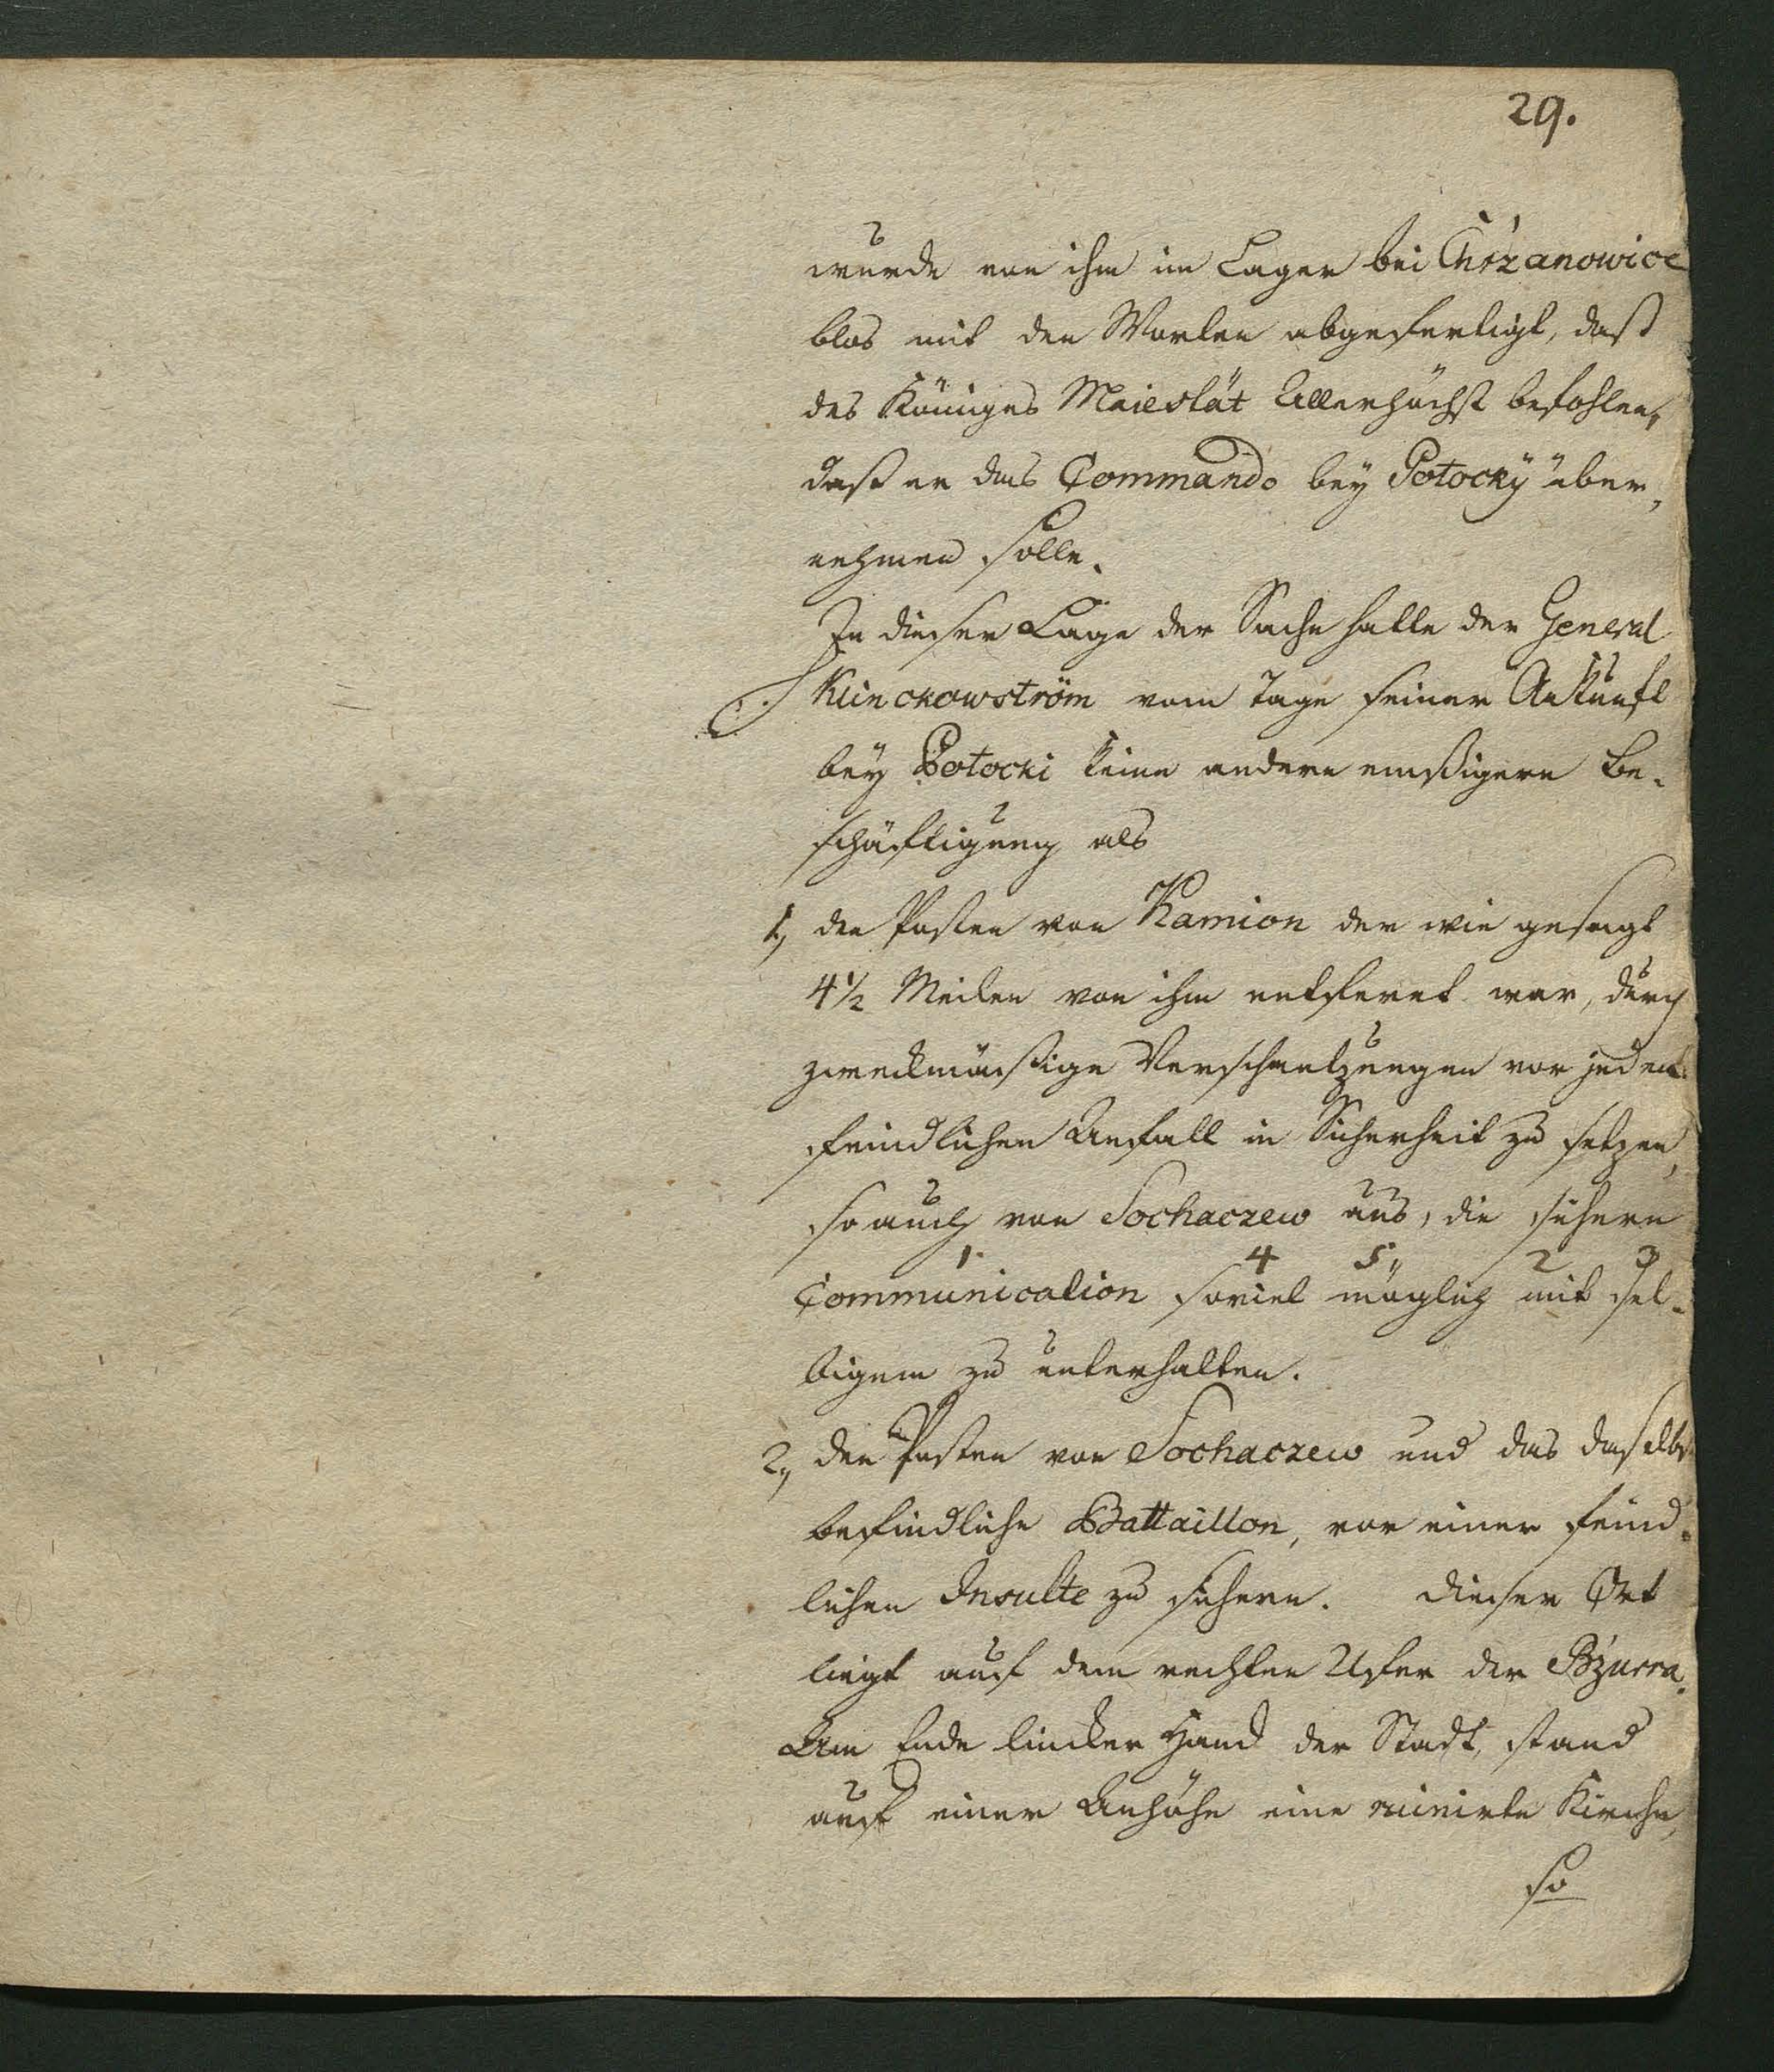 29.
wurde von ihm im Lager bei Chrzanowice
blos mit den Worten abgefertigt, daß
des Königes Maiestät Allerhöchst befohlen,
daß er das Commando bey Potocky über,
nehmen solle.
In dieser Lage der Sache hatte der General
Klinckowström vom Tage seiner Ankunft
bey Potocki keine andere emßigere Be-
schäftigung als
1, den Posten von Kamion der wie gesagt
4 1/2 Meilen von ihm entfernt war, durch
zweckmäßige Verschantzungen vor jeden
feindlichen Anfall in Sicherheit zu setzen,
so auch von Sochaczew aus, die sichere
1. 4 5,, 2 3
Communication soviel möglich mit sel-
bigem zu unterhalten.
2, den Posten von Sochaczew und das daselbst
befindliche Battaillon, vor einer feind-
lichen Insulte zu sichern. Dieser Ort
liegt auf dem rechten Ufer der Bzurra.
Am Ende lincker Hand der Stadt, stand
auf einer Anhöhe eine ruinirte Kirche,
so